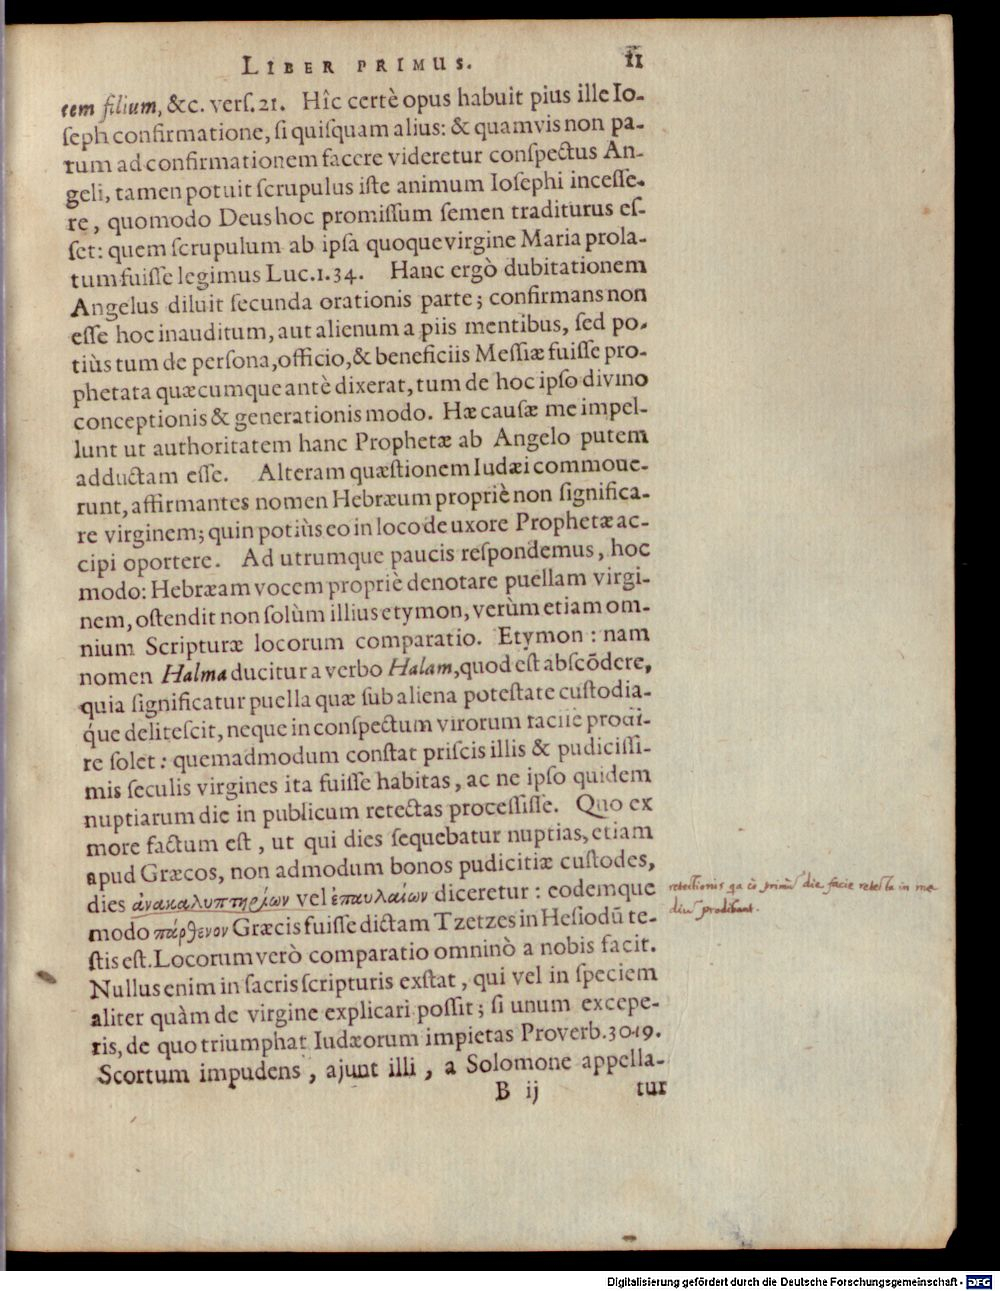 LIBER PRIMUS. 11
tem filium, &c. verſ.21. Hîc certè opus habuit pius ille Io-
ſeph confirmatione, ſi quiſquam alius: & quamvis non pa-
rum ad confirmationem facere videretur conſpectus An-
geli, tamen potuit ſcrupulus iſte animum Ioſephi inceſſe-
re, quomodo Deus hoc promiſſum ſemen traditurus eſ-
ſet: quem ſcrupulum ab ipſa quoque virgine Maria prola-
tum fuiſſe legimus Luc.1.34. Hanc ergò dubitationem
Angelus diluit ſecunda orationis parte; confirmans non
eſſe hoc inauditum, aut alienum a piis mentibus, ſed po-
tiùs tum de perſona, officio, & beneficiis Meſſiæ fuiſſe pro-
phetata quæcumque antè dixerat, tum de hoc ipſo divino
conceptionis & generationis modo. Hæ cauſæ me impel-
lunt ut authoritatem hanc Prophetæ ab Angelo putem
adductam eſſe. Alteram quæſtionem Iudæi commoue-
runt, affirmantes nomen Hebræum propriè non ſignifica-
re virginem; quin potiùs eo in loco de uxore Prophetæ ac-
cipi oportere. Ad utrumque paucis reſpondemus, hoc
modo: Hebræam vocem propriè denotare puellam virgi-
nem, oſtendit non ſolùm illius etymon, verùm etiam om-
nium Scripturæ locorum comparatio. Etymon: nam
nomen Halma ducitur a verbo Halam, quod eſt abſcōdere,
quia ſignificatur puella quæ ſub aliena poteſtate cuſtodia-
q́ue deliteſcit, neque in conſpectum virorum facilè prodi-
re ſolet: quemadmodum conſtat priſcis illis & pudiciſſi-
mis ſeculis virgines ita fuiſſe habitas, ac ne ipſo quidem
nuptiarum die in publicum retectas proceſſiſſe. Quo ex
more factum eſt, ut qui dies ſequebatur nuptias, etiam
apud Græcos, non admodum bonos pudicitiæ cuſtodes,
dies ἀνακαλυπτηρίων vel ἐπαυλαίων diceretur: eodemque
modo πάρθενον Græcis fuiſſe dictam Tzetzes in Heſiodū te-
ſtis eſt. Locorum verò comparatio omninò a nobis facit.
Nullus enim in ſacris ſcripturis exſtat, qui vel in ſpeciem
aliter quàm de virgine explicari poſſit; ſi unum excepe-
ris, de quo triumphat Iudæorum impietas Proverb.30.19.
Scortum impudens, ajunt illi, a Solomone appella-
B ij tur
retectionis qa eo primū die facie retecta in me
diū prodibant.
Digitalisierung gefördert durch die Deutsche Forschungsgemeinschaft - DFG